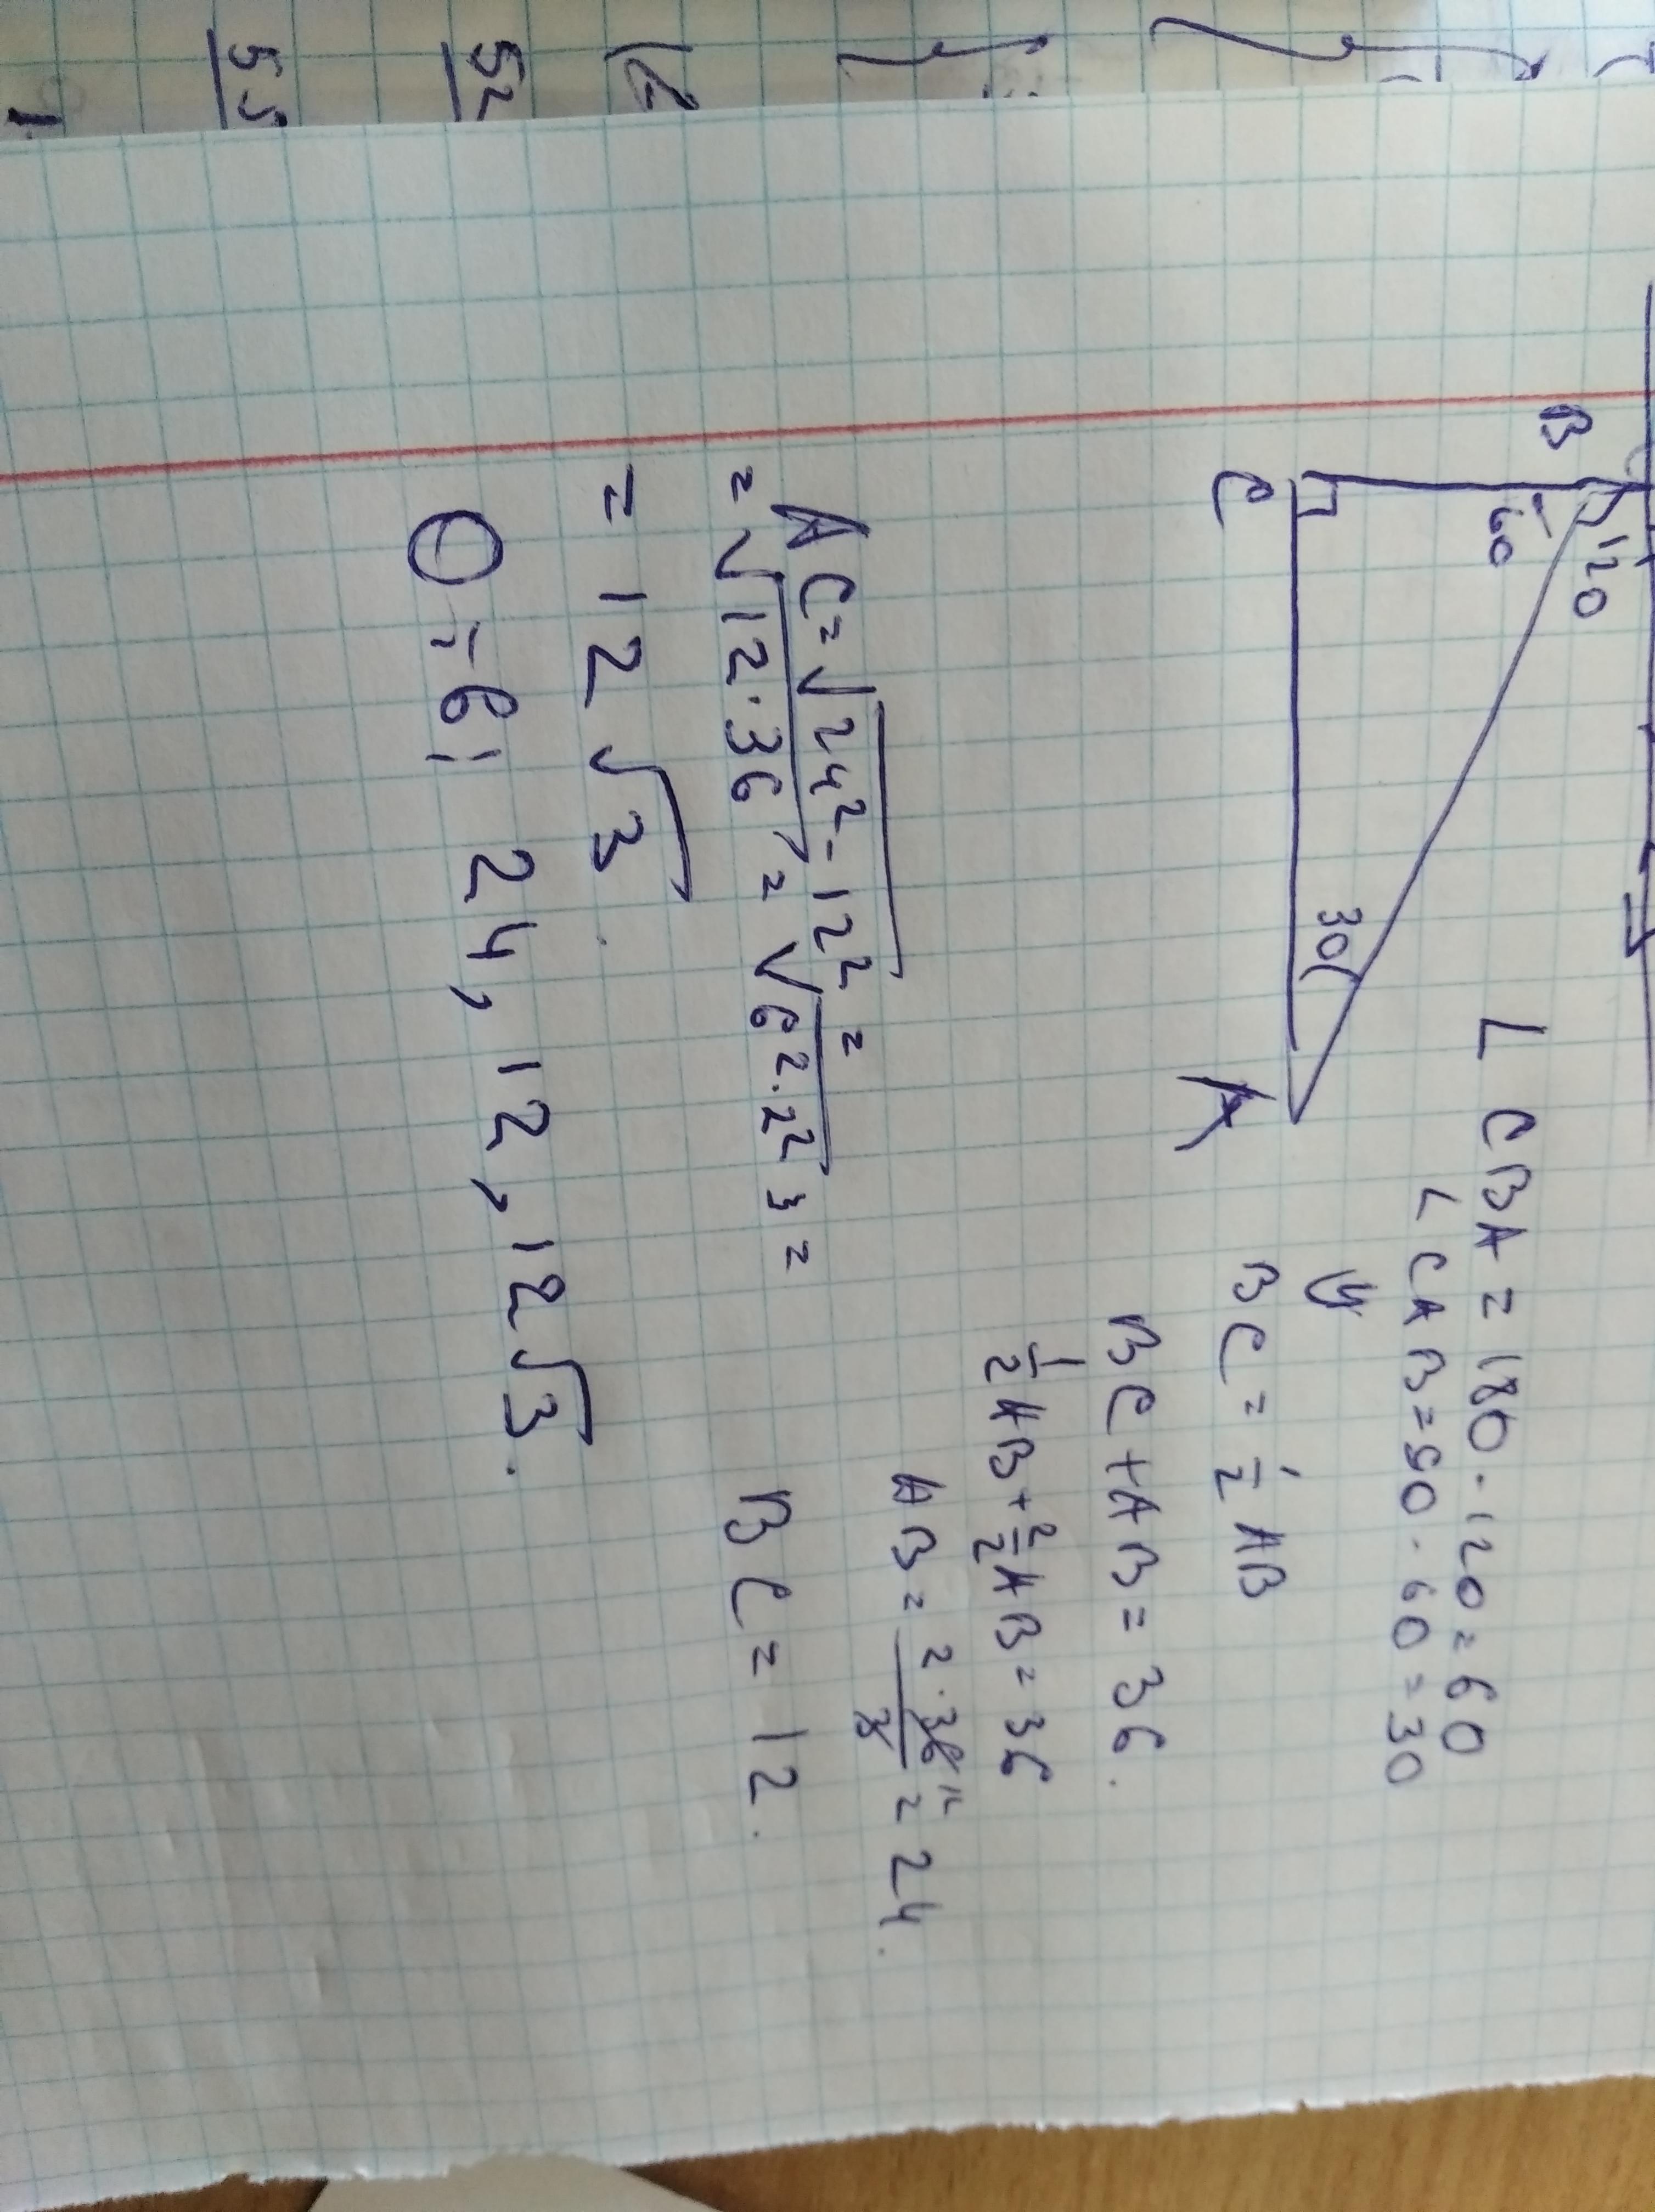 B
120
60
C
30
A
∠CBA = 180 - 120 = 60
∠CAB = 90 - 60 = 30
⇓
BC = 1/2 AB
BC + AB = 36.
1/2 AB + 2/2 AB = 36
AB = 2·36 12 / 3 = 24.
BC = 12.
AC = √24² - 12² =
= √12·36 = √6²·2² 3 =
= 12√3.
О-в: 24, 12, 12√3.